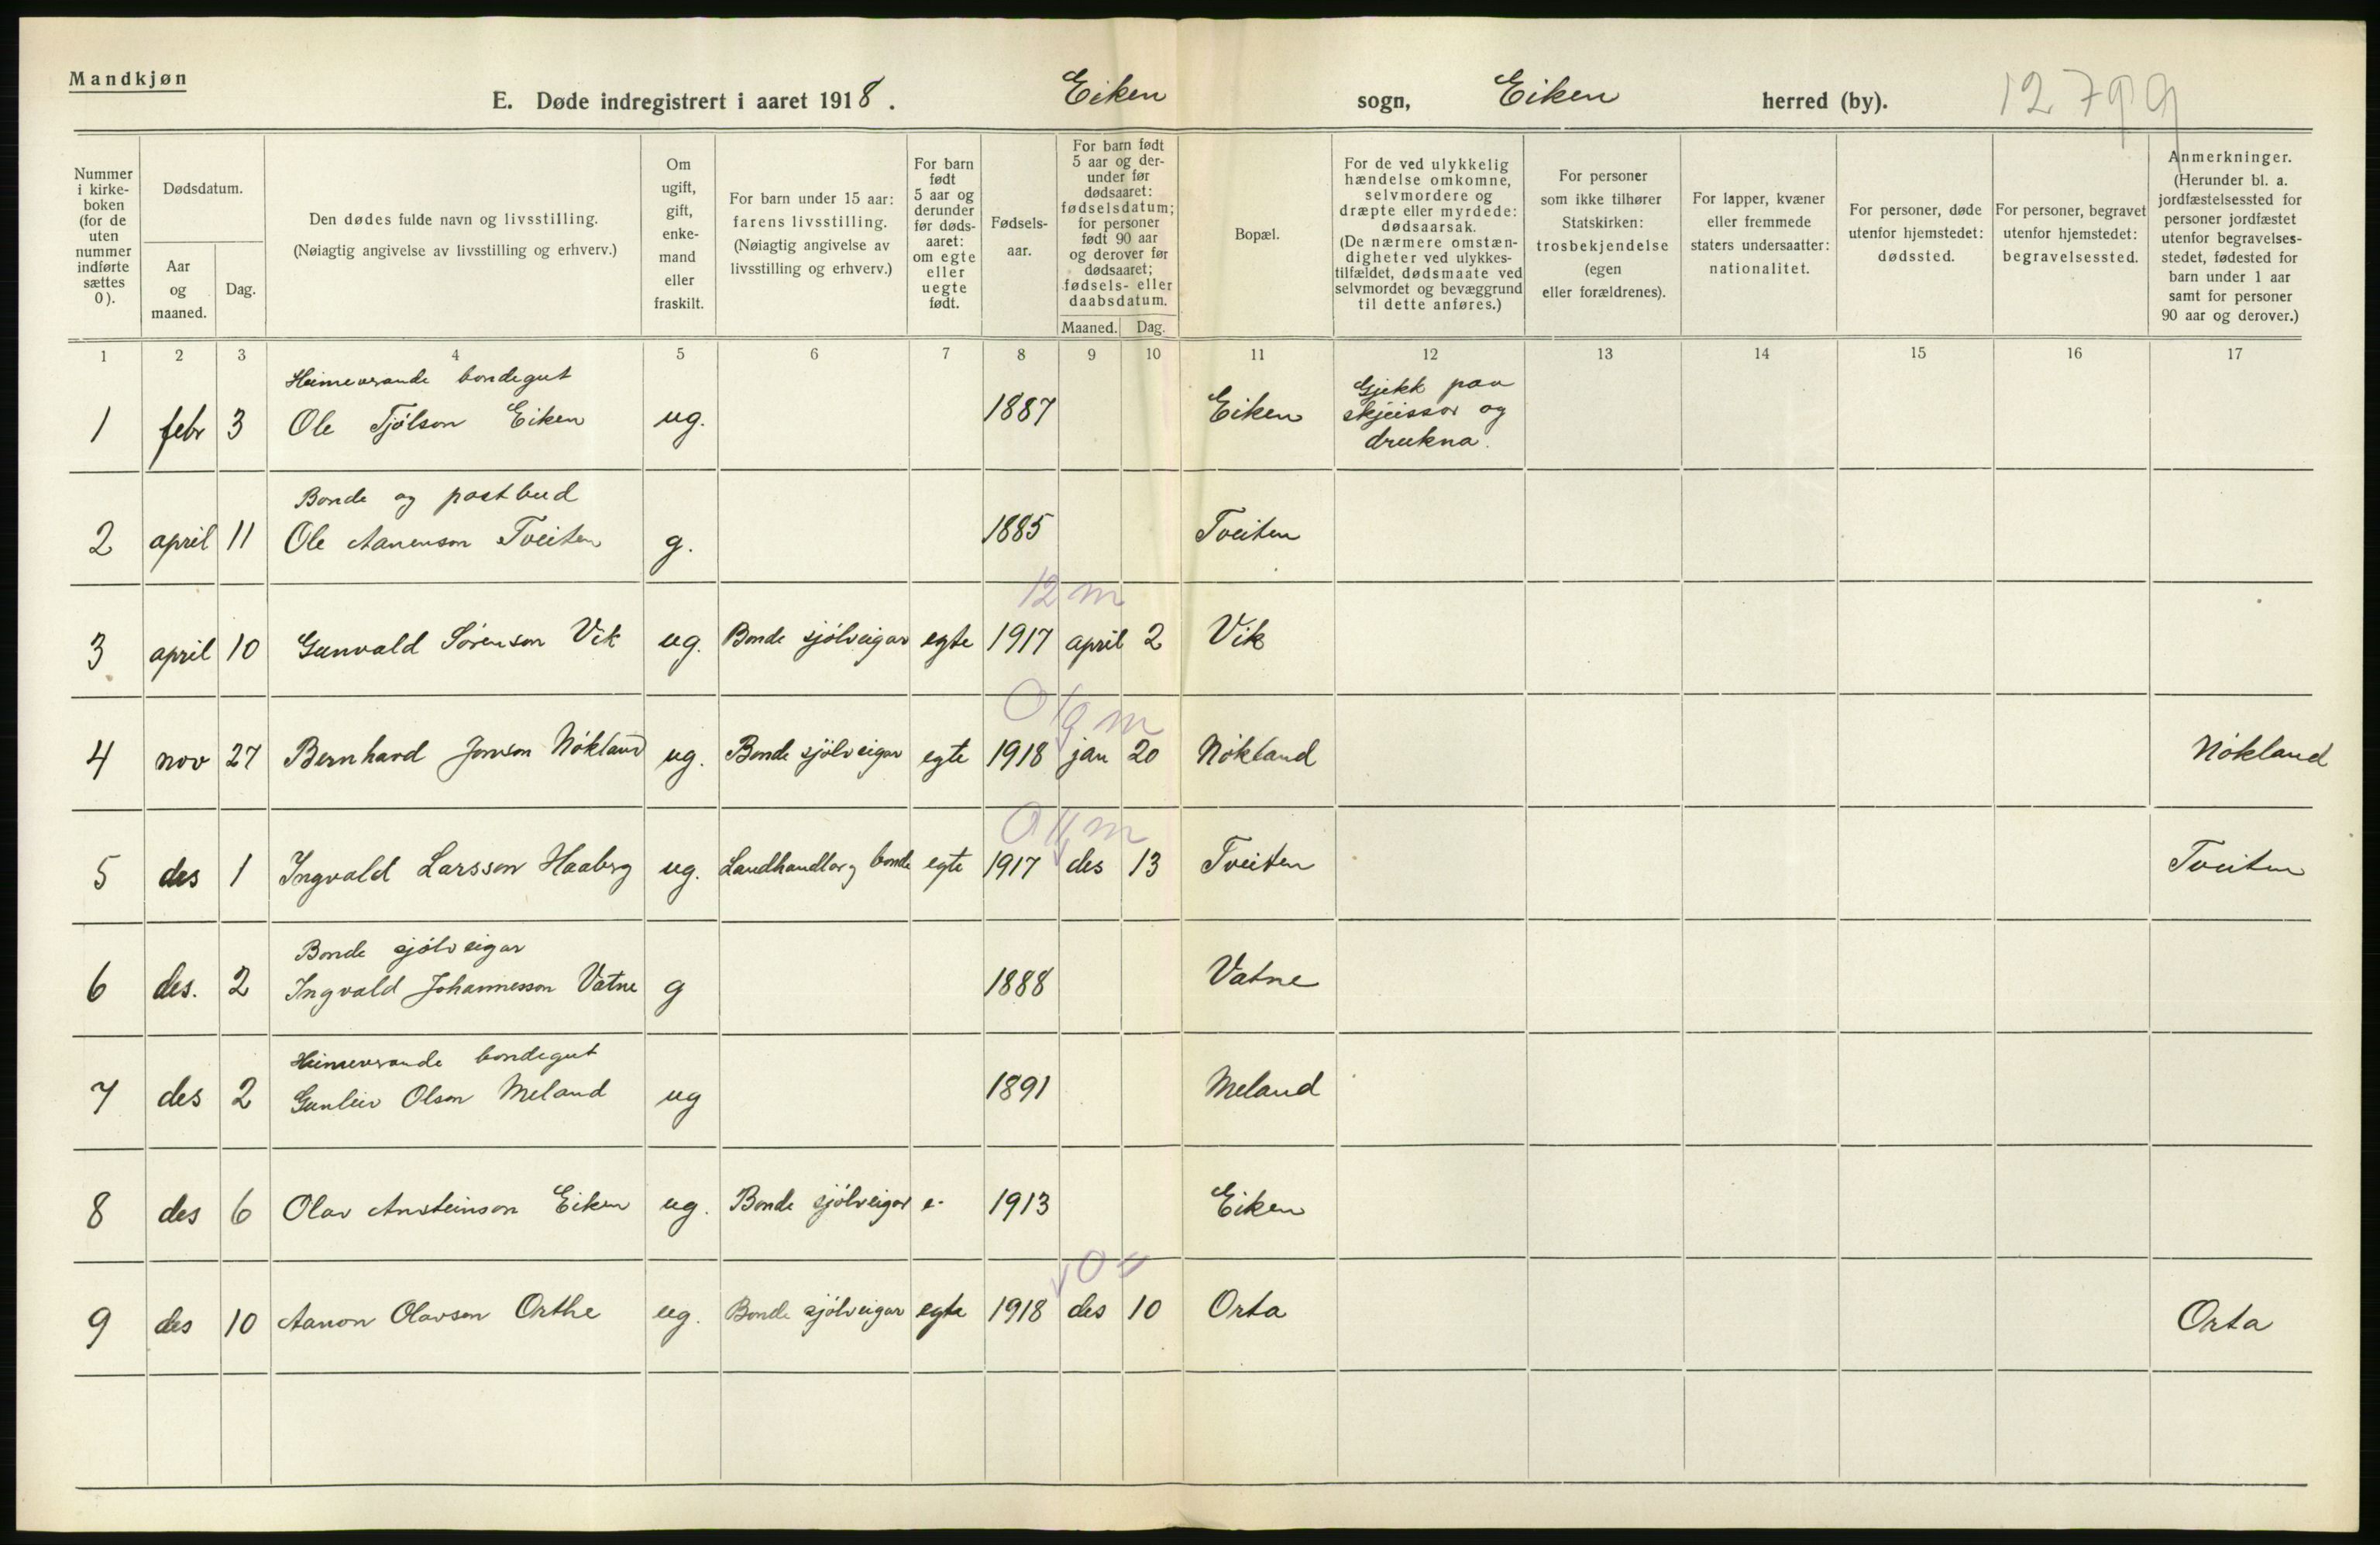 Mandkjøn
E. Døde indregistrert i aaret 1918. Eiken sogn, Eiken herred (by). 12799
Nummer i kirke-boken (for de uten nummer indførte sættes 0).
Dødsdatum.
Aar og maaned.
Dag.
Den dødes fulde navn og livsstilling.
(Nøiagtig angivelse av livsstilling og erhverv.)
Om ugift, gift, enke-mand eller fraskilt.
For barn under 15 aar: farens livsstilling. (Nøiagtig angivelse av livsstilling og erhverv.)
For barn født 5 aar og derunder før døds-aaret: om egte eller uegte født.
Fødsels-aar.
For barn født 5 aar og der-under før dødsaaret: fødselsdatum; for personer født 90 aar og derover før dødsaaret; fødsels- eller daabsdatum.
Maaned. Dag.
Bopæl.
For de ved ulykkelig hændelse omkomne, selvmordere og dræpte eller myrdede: dødsaarsak. (De nærmere omstæn-digheter ved ulykkes-tilfældet, dødsmaate ved selvmordet og bevæggrund til dette anføres.)
For personer som ikke tilhører Statskirken: trosbekjendelse (egen eller forældrenes).
For lapper, kvæner eller fremmede staters undersaatter: nationalitet.
For personer, døde utenfor hjemstedet: dødssted.
For personer, begravet utenfor hjemstedet: begravelsessted.
Anmerkninger. (Herunder bl. a. jordfæstelsessted for personer jordfæstet utenfor begravelses-stedet, fødested for barn under 1 aar samt for personer 90 aar og derover.)
1 2 3 4 5 6 7 8 9 10 11 12 13 14 15 16 17
Heimeverande bondegut
1 febr 3 Ole Tjølson Eiken ug. 1887 Eiken Gjekk paa skjeissor og drukna.
Bonde og postbud
2 april 11 Ole Aanenson Tveiten g. 1885 Tveiten
12 m
3 april 10 Gunvald Sørenson Vik ug. Bonde sjølveigar egte 1917 april 2 Vik
0/9 m
4 nov 27 Bernhard Jonson Nökland ug. Bonde sjølveigar egte 1918 jan 20 Nökland Nökland
0 11 m
5 des 1 Ingvald Larsson Haaberg ug. Landhandlar og bonde egte 1917 des 13 Tveiten Tveiten
Bonde sjølveigar
6 des. 2 Ingvald Johannesson Vatne g 1888 Vatne
Heimeverande bondegut
7 des 2 Gunleiv Olson Meland ug 1891 Meland
8 des 6 Olav Ansteinson Eiken ug. Bonde sjølveigar e. 1913 Eiken
9 des 10 Aanon Olavson Orthe ug. Bonde sjølveigar egte 1918 des 10 Orta Orta